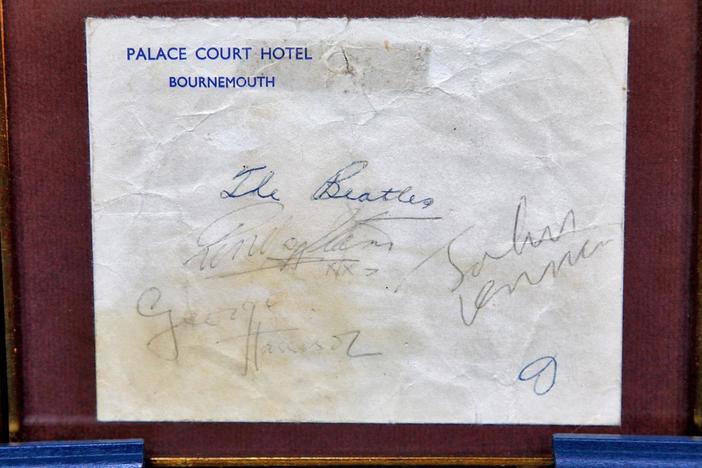 PALACE COURT HOTEL
BOURNEMOUTH
The Beatles
John
Lennon
George
Harrison